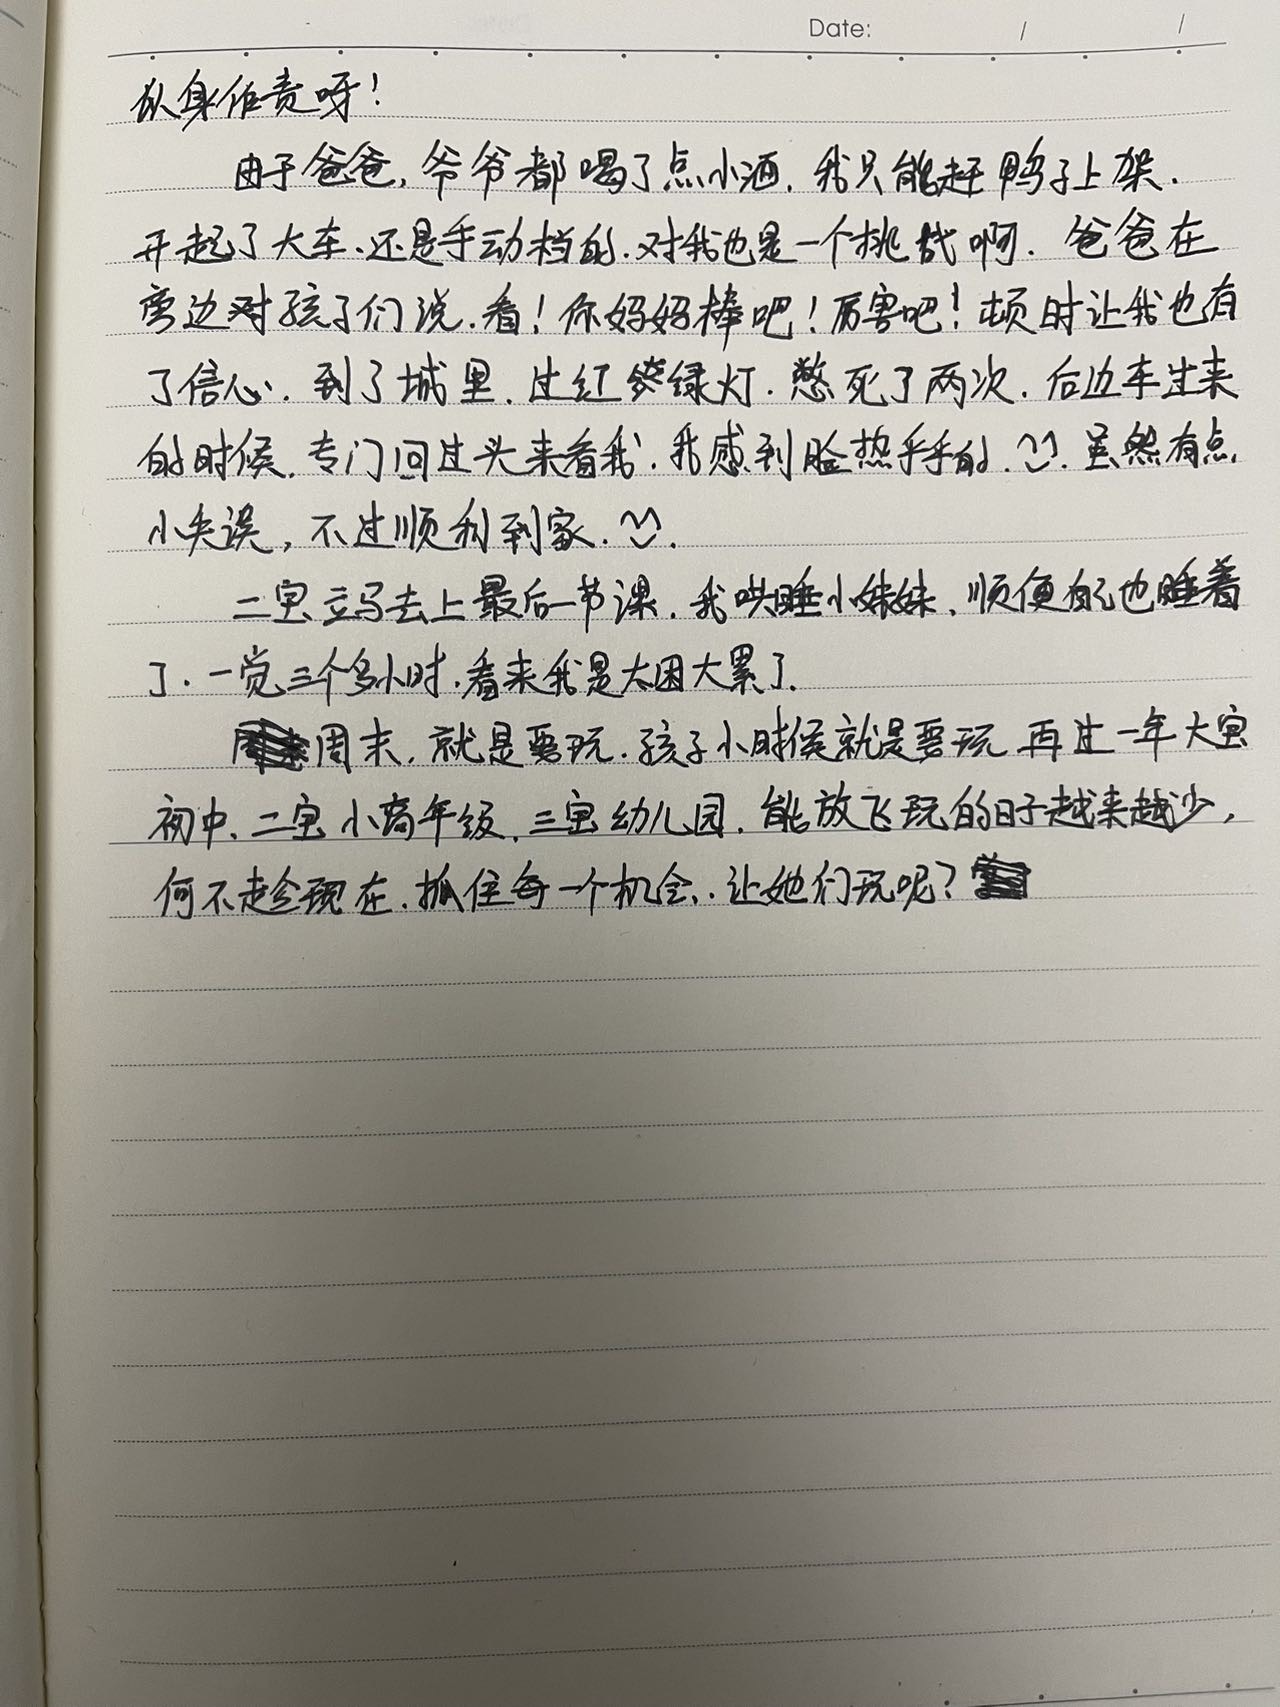 Date: / /
从身作责呀！
由于爸爸,爷爷都喝了点小酒.我只能赶鸭子上架.
开起了大车.还是手动档的.对我也是一个挑战啊.爸爸在
旁边对孩子们说.看！你妈妈棒吧！厉害吧！顿时让我也有
了信心.到了城里.过红绿灯.憋死了两次.后边车过来
的时候.专门回过头来看我.我感到脸热乎乎的.虽然有点
小失误,不过顺利到家.
二宝立马去上最后一节课.我哄睡小妹妹.顺便自己也睡着
了.一觉三个多小时.看来我是太困太累了.
周末.就是要玩.孩子小时候就是要玩 再过一年大宝
初中.二宝小高年级.三宝幼儿园.能放飞玩的日子越来越少,
何不趁现在.抓住每一个机会..让她们玩呢？